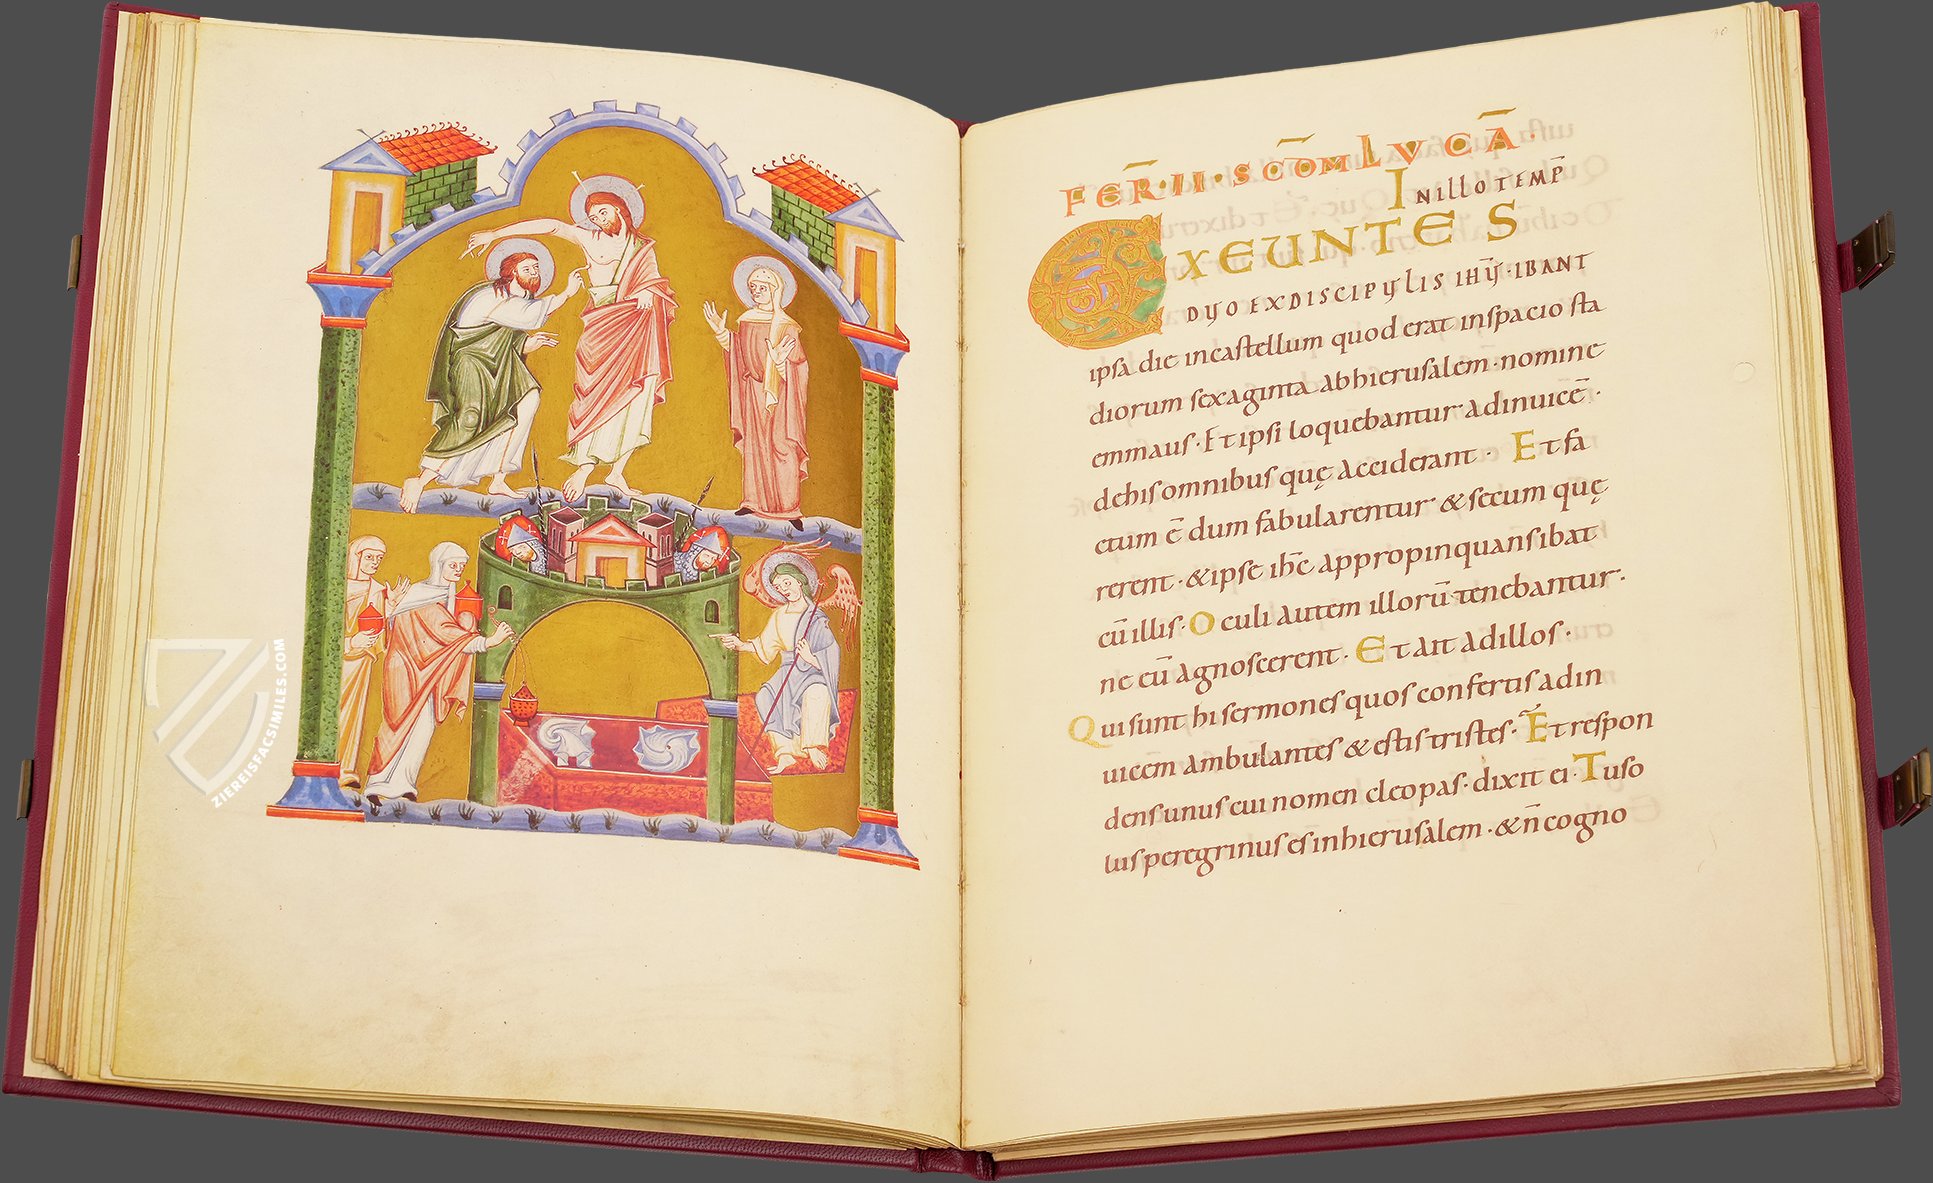 ZIEREISFACSIMILES.COM
30
FER̄·II·SCD̄M LVCĀ·
IN ILLO TEMP̄
EXEUNTES
DUO EX DISCIPULIS IHŪ·IBANT
ipsa die incastellum quod erat inspacio sta
diorum sexaginta abhierusalem·nomine
emmaus·Et ipsi loquebantur adinuicē·
dehis omnibus quę acciderant· Et fa
ctum ē dum fabularentur & secum quę
rerent·&ipse ihc̄ appropinquans ibat
cū illis·Oculi autem illorū tenebantur·
ne eū agnoscerent·Et ait adillos·
Qui sunt hi sermones quos confertis adin
uicem ambulantes & estis tristes·Et respon
dens unus cui nomen cleopas·dixit ei·Tu so
lus peregrinus es inhierusalem·&n̄ cogno